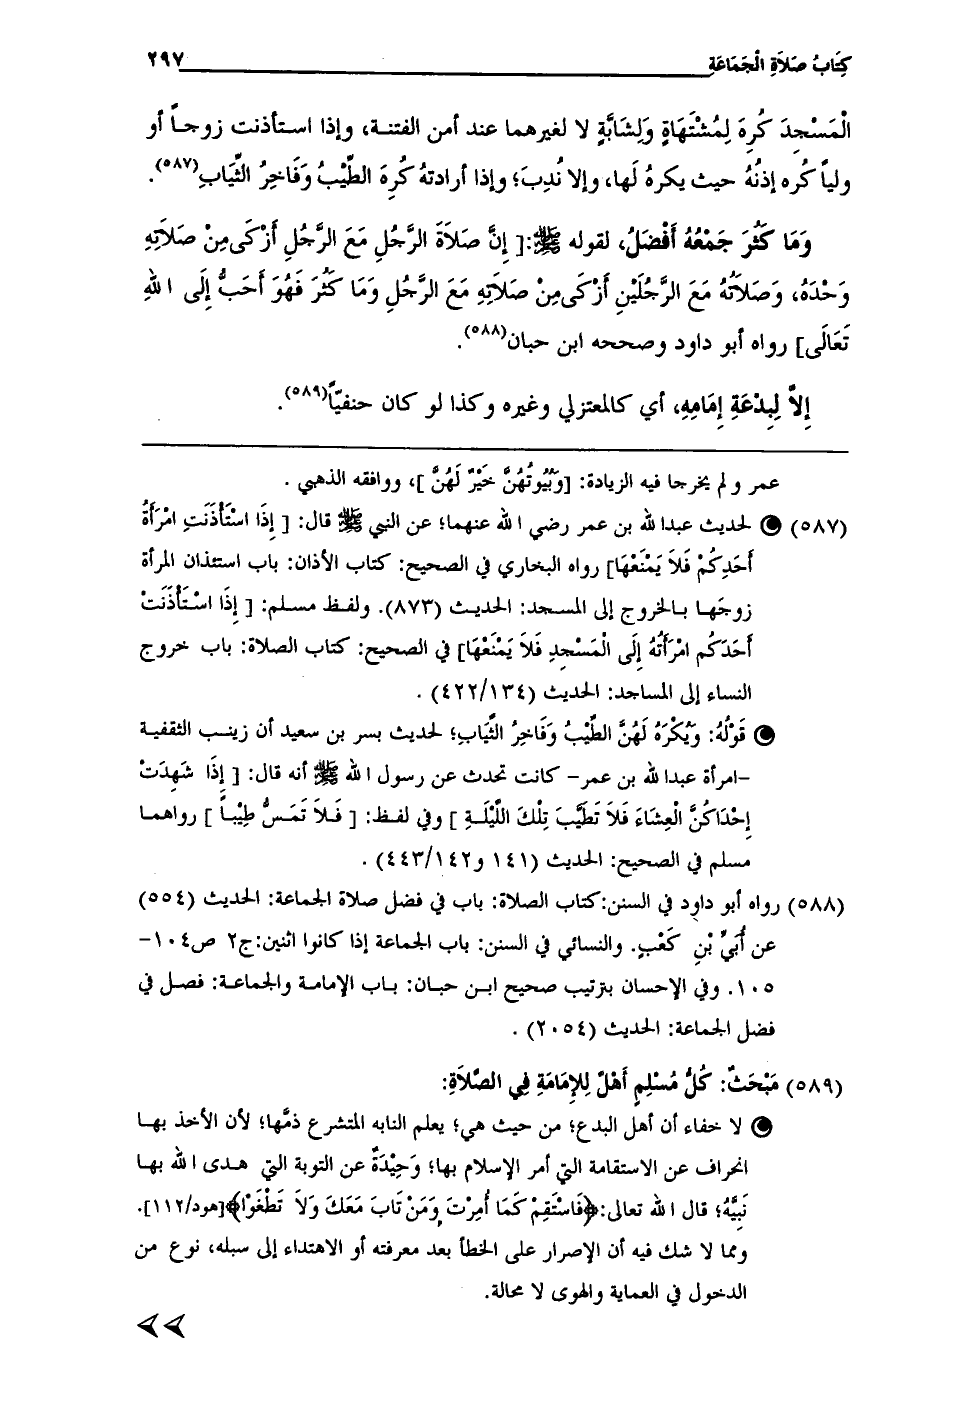 كِتَابُ صَلاَةِ الْجَمَاعَةِ ٢٩٧
الْمَسْجِدَ كُرِهَ لِمُشْتَهَاةٍ وَلِشَابَّةٍ لا لغيرهما عند أمن الفتنـة، وإذا استـأذنت زوجـاً أو
ولياً كُره إذنُهُ حيث يكرهُ لَها، وإلا نُدِبَ؛ وإذا أرادتهُ كُرِهَ الطِّيْبُ وَفَاخِرُ الثِّيَابِ(٥٨٧).
وَمَا كَثُرَ جَمْعُهُ أَفْضَلُ، لقوله ﷺ:[ إِنَّ صَلاَةَ الرَّجُلِ مَعَ الرَّجُلِ أَزْكَى مِنْ صَلاَتِهِ
وَحْدَهُ، وَصَلاَتُهُ مَعَ الرَّجُلَيْنِ أَزْكَى مِنْ صَلاَتِهِ مَعَ الرَّجُلِ وَمَا كَثُرَ فَهُوَ أَحَبُّ إِلَى اللهِ
تَعَالَى] رواه أبو داود وصححه ابن حبان(٥٨٨).
إِلاَّ لِبِدْعَةِ إِمَامِهِ، أي كالمعتزلي وغيره وكذا لو كان حنفيّاً(٥٨٩).
عمر ولم يخرجا فيه الزيادة: [وَبُيُوتُهُنَّ خَيْرٌ لَهُنَّ ]، ووافقه الذهبي .
(٥٨٧) لحديث عبدالله بن عمر رضي الله عنهما؛ عن النبي ﷺ قال: [ إِذَا اسْتَأْذَنَتِ امْرَأَةُ
أَحَدِكُمْ فَلاَ يَمْنَعْهَا] رواه البخاري في الصحيح: كتاب الأذان: باب استئذان المرأة
زوجَهـا بـالخروج إلى المسـجد: الحديـث (٨٧٣). ولفـظ مسـلم: [ إِذَا اسْتَأْذَنَتْ
أَحَدَكُم امْرَأَتُهُ إِلَى الْمَسْجِدِ فَلاَ يَمْنَعْهَا] في الصحيح: كتاب الصلاة: باب خروج
النساء إلى المساجد: الحديث (٤٢٢/١٣٤) .
قَوْلُهُ: وَيُكْرَهُ لَهُنَّ الطِّيْبُ وَفَاخِرُ الثِّيَابِ؛ لحديث بسر بن سعيد أن زينب الثقفية
-امرأة عبدالله بن عمر- كانت تحدث عن رسول الله ﷺ أنه قال: [ إِذَا شَهِدَتْ
إِحْدَاكُنَّ الْعِشَاءَ فَلاَ تَطَيَّبَ تِلْكَ اللَّيْلَـةِ ] وفي لفـظ: [ فَـلاَ تَمَسُّ طِيْبـاً ] رواهمـا
مسلم في الصحيح: الحديث (١٤١ و٤٤٣/١٤٢) .
(٥٨٨) رواه أبو داود في السنن:كتاب الصلاة: باب في فضل صلاة الجماعة: الحديث (٥٥٤)
عن أُبَيِّ بْنِ كَعْبٍ. والنسائي في السنن: باب الجماعة إذا كانوا اثنين:ج٢ ص١٠٤-
١٠٥. وفي الإحسان بترتيب صحيح ابـن حبـان: بـاب الإمامـة والجماعـة: فصـل في
فضل الجماعة: الحديث (٢٠٥٤) .
(٥٨٩) مَبْحَثٌ: كُلُّ مُسْلِمٍ أَهْلٌ لِلإِمَامَةِ فِي الصَّلاَةِ:
لا خفاء أن أهل البدع؛ من حيث هي؛ يعلم النابه المتشرع ذمَّها؛ لأن الأخذ بهـا
انحراف عن الاستقامة التي أمر الإسلام بها؛ وَحِيْدَةٌ عن التوبة التي هـدى الله بهـا
نَبِيَّهُ؛ قال الله تعالى:﴿فَاسْتَقِمْ كَمَا أُمِرْتَ وَمَنْ تَابَ مَعَكَ وَلاَ تَطْغَوْا﴾[هود/١١٢].
ومما لا شك فيه أن الإصرار على الخطأ بعد معرفته أو الاهتداء إلى سبله، نوع من
الدخول في العماية والهوى لا محالة.